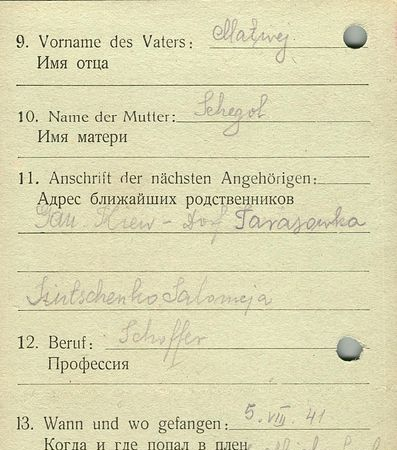 9. Vorname des Vaters: Matwej
Имя отца
10. Name der Mutter: Schegol
Имя матери
11. Anschrift der nächsten Angehörigen:
Адрес ближайших родственников
Gau. Kiew - Dorf Tarasowka
Salomeja
12. Beruf: Schoffer
Профессия
13. Wann und wo gefangen: 5. VIII. 41
Когда и где попал в плен